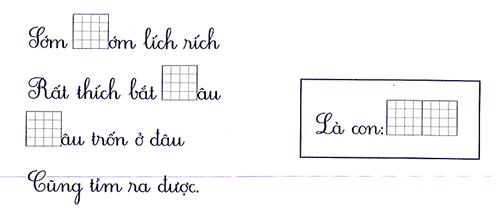 Sớm ớm lích rích
Rất thích bắt âu
âu trốn ở đâu
Cũng tìm ra được.
Là con: